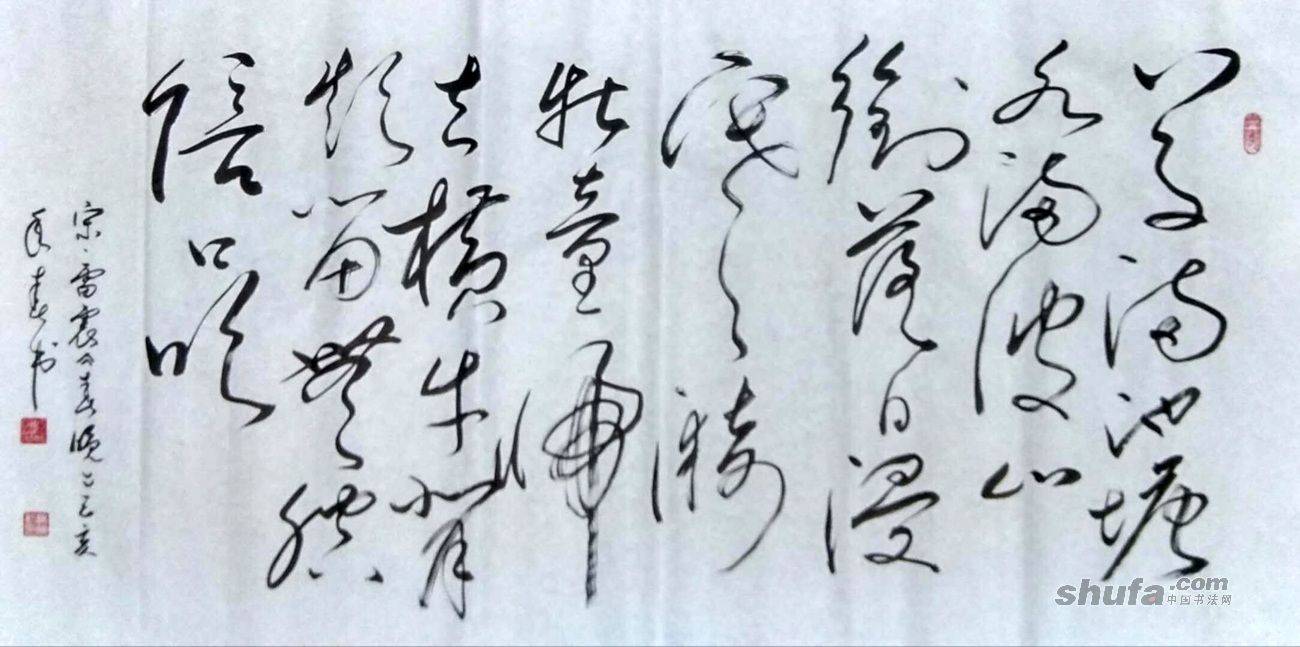 草满池塘
水满陂山
衔落日浸
寒漪
牧童归
去横牛背
短笛无腔
信口吹
宋、雷震 晚 己亥
年春书
shufa.com
中国书法网